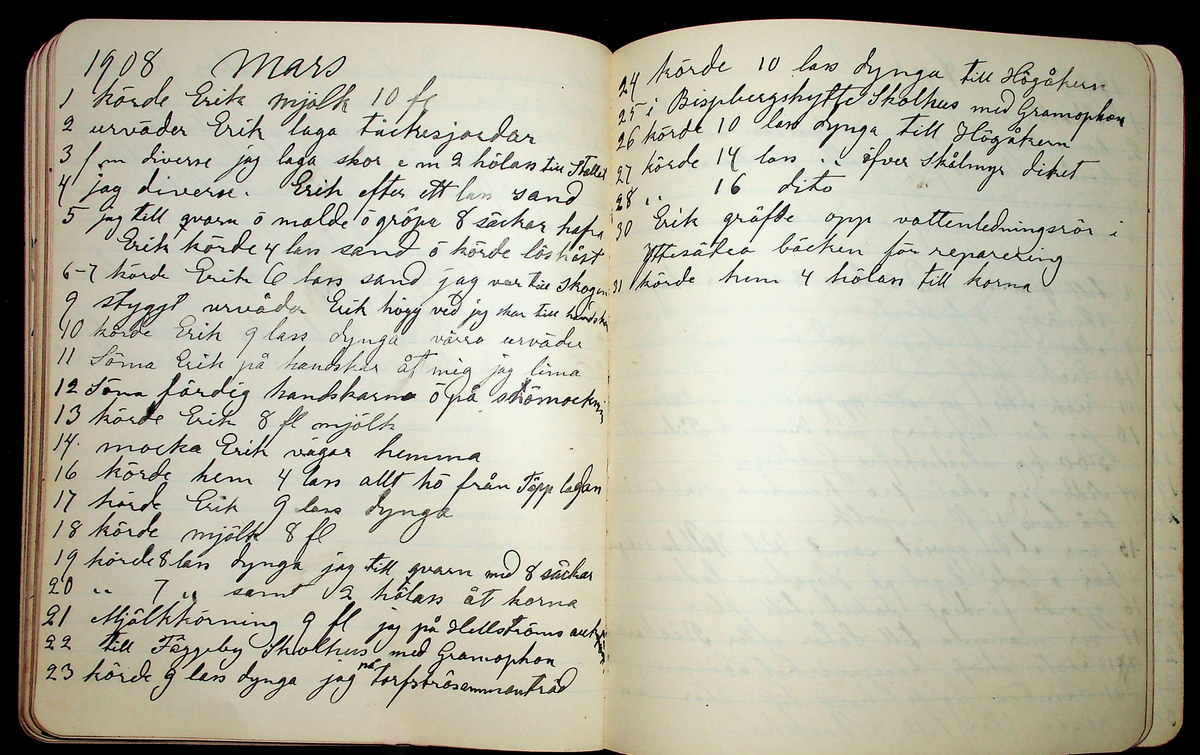 1908 Mars
1 körde Erik mjölk 10 fl
2 urväder Erik laga täckesjordar
3 f m diverse jag laga skor e m 2 hölass till Stallet
4 jag diverse. Erik efter ett lass sand
5 jag till qvarn ö malde ö gröpa 8 säckar hafra
Erik körde 4 lass sand ö körde lös häst
6-7 körde Erik 6 lass sand jag var till skogen
9 styggt urväder Erik högg ved jag skar till handskar
10 körde Erik 9 lass dynga värra urväder
11 Söma Erik på handskar åt mig jag lima
12 Söma färdig handskarna ö på strömockning
13 körde Erik 8 fl mjölk
14. mocka Erik vägar hemma
16 körde hem 4 lass allt hö från Täpp ladan
17 körde Erik 9 lass dynga
18 körde mjölk 8 fl
19 körde 8 lass dynga jag till qvarn med 8 säckar
20 ,, 7 ,, samt 2 hölass åt korna
21 Mjölkkörning 9 fl jag på Hellströms auktion
22 till Fäggeby Skolhus med Gramophon
23 körde 9 lass dynga jag på Torfströsammanträd
24 körde 10 lass dynga till Högåkern
25 i Bispbergshytte Skolhus med Gramophon
26 körde 10 lass dynga till Högåkern
27 körde 14 lass ,, öfver Skålmyr diket
28 ,, 16 dito
30 Erik gräfde opp vattenledningsrör i
Yttersätra bäcken för reparering
31 körde hem 4 hölass till korna